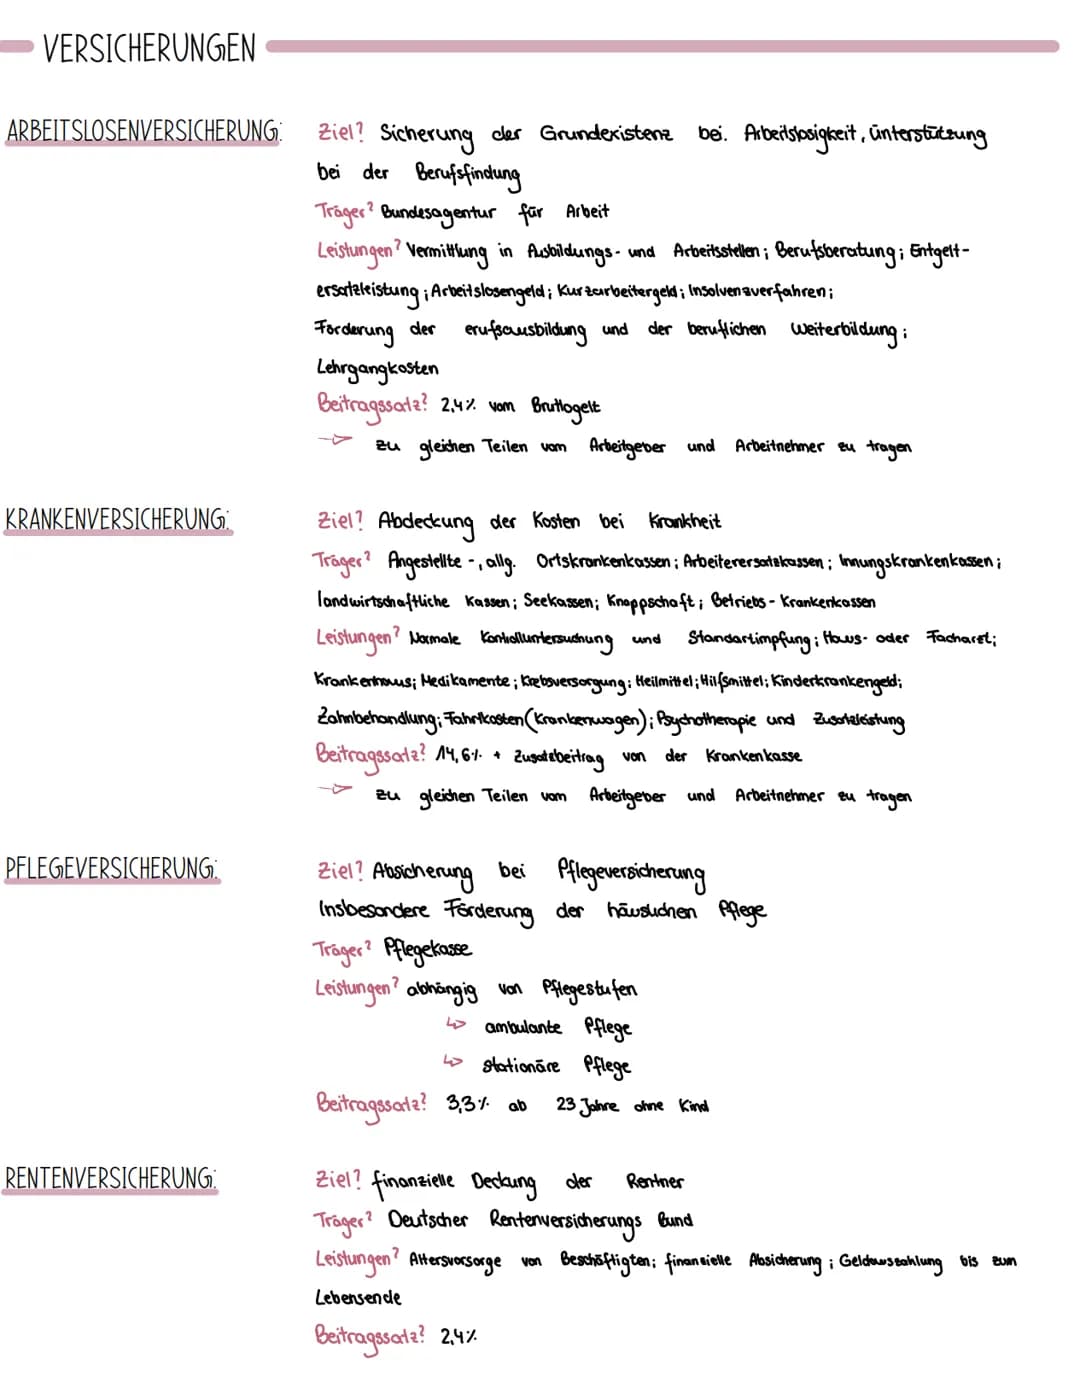 VERSICHERUNGEN
ARBEITSLOSENVERSICHERUNG: Ziel? Sicherung der Grundexistenz bei. Arbeitslosigkeit, ünterstützung
bei der Berufsfindung
Träger? Bundesagentur für Arbeit
Leistungen? Vermittlung in Ausbildungs- und Arbeitsstellen; Berufsberatung; Entgelt-
ersatzleistung; Arbeitslosengeld; Kurzarbeitergeld; Insolvenzverfahren;
Förderung der erufsausbildung und der beruflichen Weiterbildung;
Lehrgangkosten
Beitragssatz? 2,4% vom Bruttogelt
→ zu gleichen Teilen vom Arbeitgeber und Arbeitnehmer zu tragen
KRANKENVERSICHERUNG: Ziel? Abdeckung der Kosten bei Krankheit
Träger? Angestellte-, allg. Ortskrankenkassen; Arbeiterersatzkassen; Innungskrankenkassen;
landwirtschaftliche Kassen; Seekassen; Knappschaft; Betriebs-Krankenkassen
Leistungen? Normale Kontrolluntersuchung und Standartimpfung; Haus- oder Facharzt;
Krankenhaus; Medikamente; Krebsversorgung; Heilmittel; Hilfsmittel; Kinderkrankengeld;
Zahnbehandlung; Fahrtkosten (Krankenwagen); Psychotherapie und Zusatzleistung
Beitragssatz? 14,6% + Zusatzbeitrag von der Krankenkasse
→ zu gleichen Teilen vom Arbeitgeber und Arbeitnehmer zu tragen
PFLEGEVERSICHERUNG: Ziel? Absicherung bei Pflegeversicherung
Insbesondere Förderung der häuslichen Pflege
Träger? Pflegekasse
Leistungen? abhängig von Pflegestufen
↳ ambulante Pflege
↳ stationäre Pflege
Beitragssatz? 3,3% ab 23 Jahre ohne Kind
RENTENVERSICHERUNG: Ziel? finanzielle Deckung der Rentner
Träger? Deutscher Rentenversicherungs Bund
Leistungen? Altersvorsorge von Beschäftigten; finanzielle Absicherung; Geldauszahlung bis zum
Lebensende
Beitragssatz? 2,4%